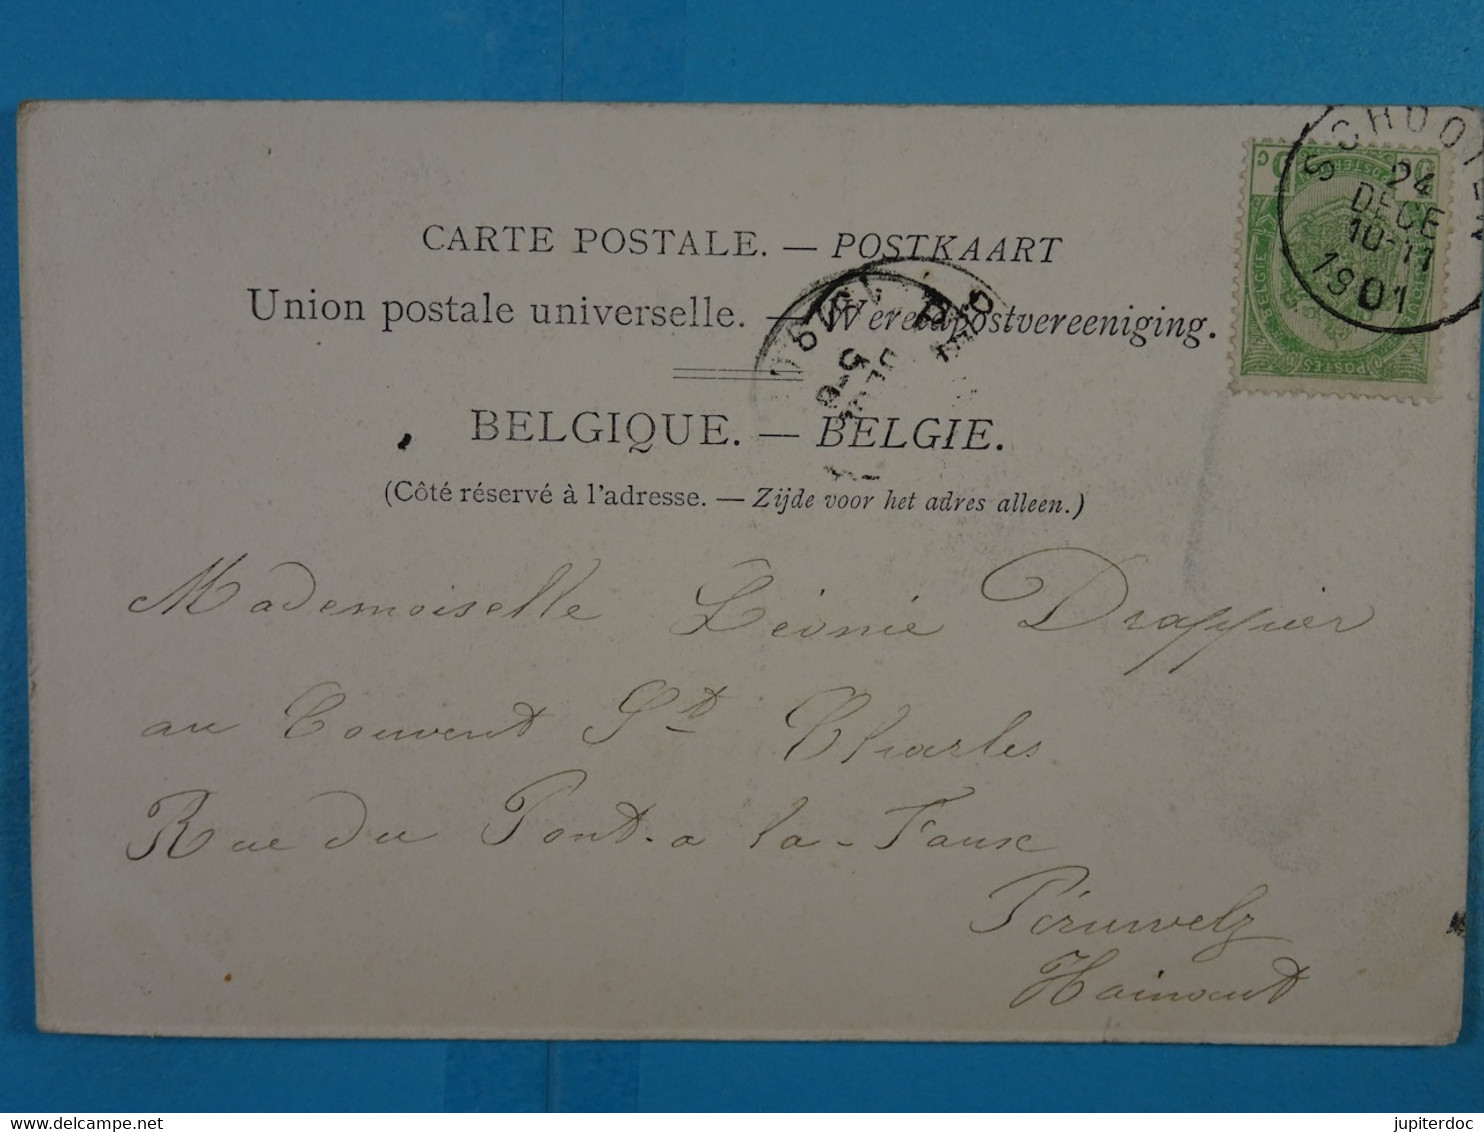 SCHOOTEN
24
DECE
10-11
1901
BELGIE
POSTES
CARTE POSTALE. — POSTKAART
Union postale universelle. — Wereldpostvereeniging.
BELGIQUE. — BELGIE.
(Côté réservé à l'adresse. — Zijde voor het adres alleen.)
Mademoiselle Léonie Drappier
au Couvent St Charles
Rue du Pont-a la-Faux
Péruwelz
Hainaut
jupiterdoc